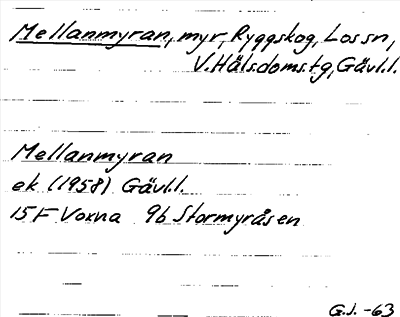 Mellanmyran, myr, Ryggskog, Los sn,
V. Hälsdoms.tg, Gävl.l.
Mellanmyran
ek (1958) Gävl.l.
15 F Voxna 9b Stormyråsen
G.J. -63